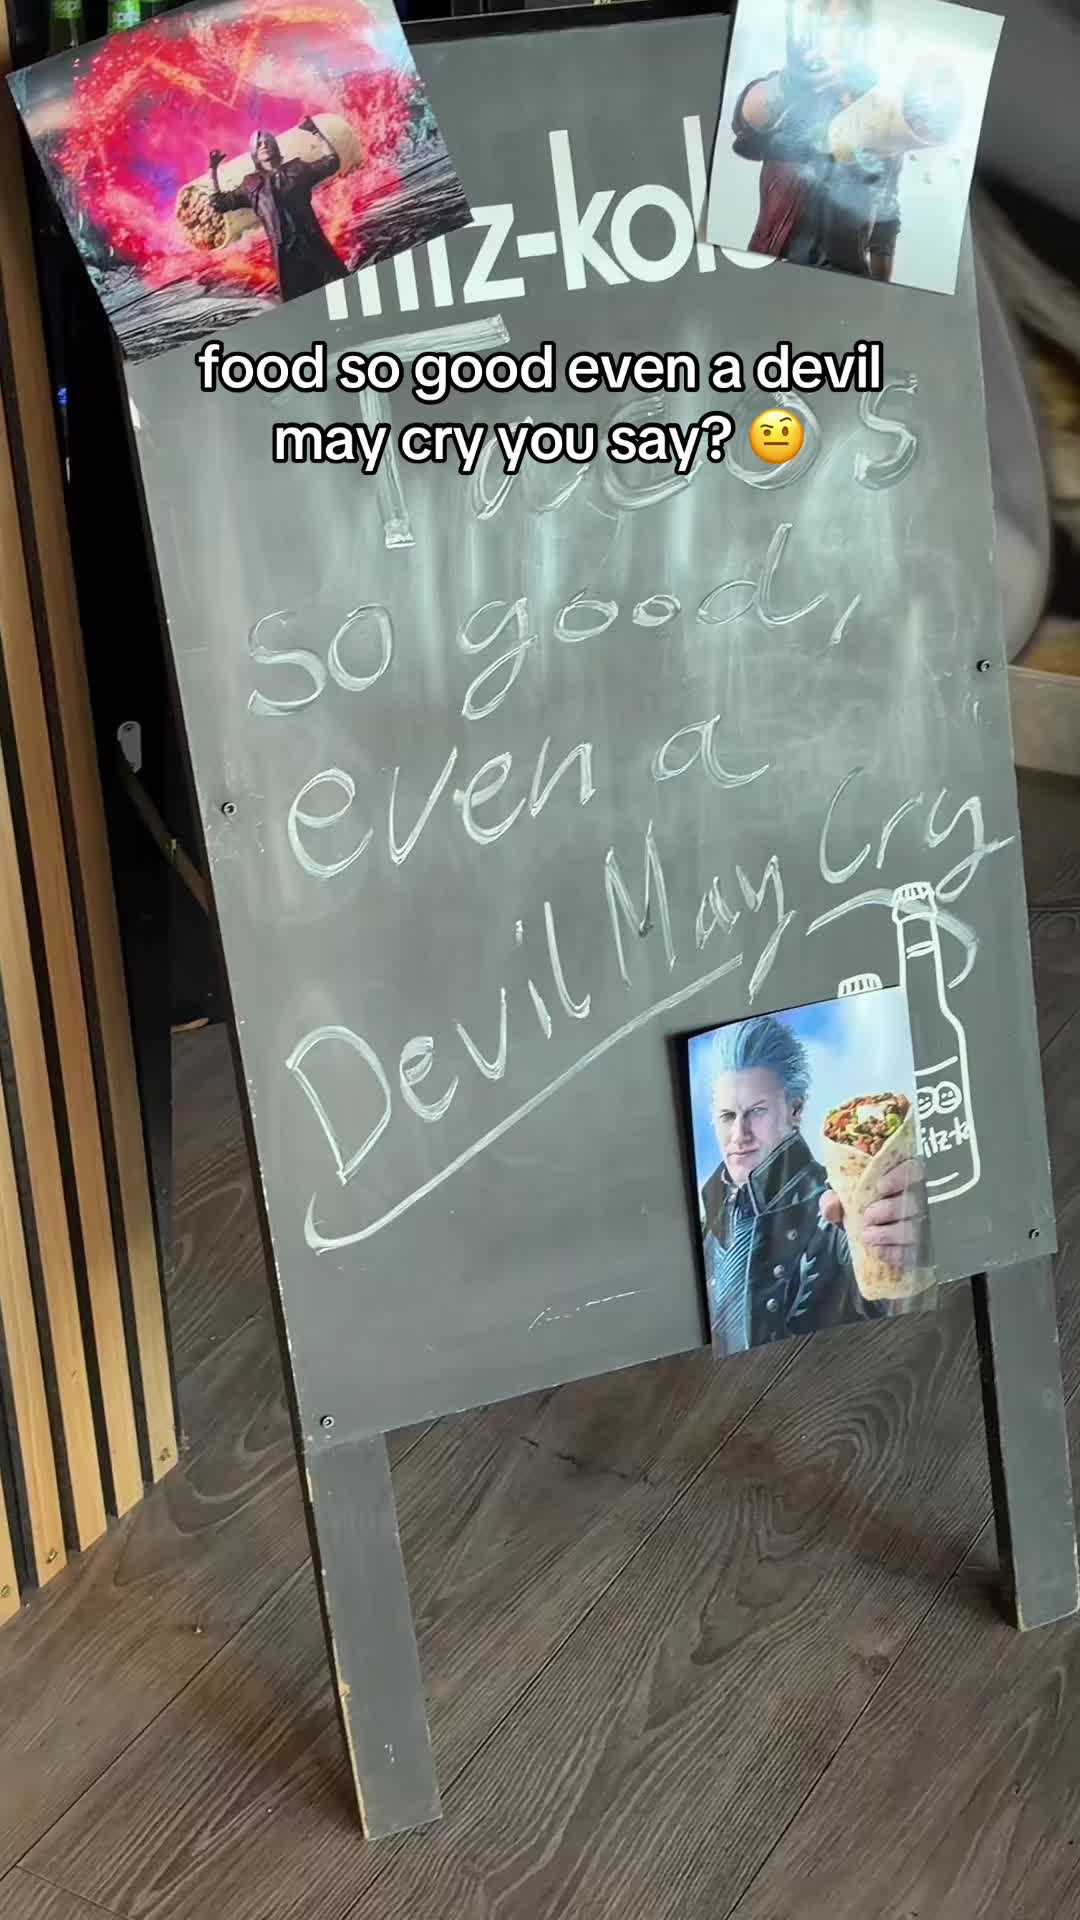 food so good even a devil
may cry you say? 🤨
Tacos
so good,
even a
Devil May Cry